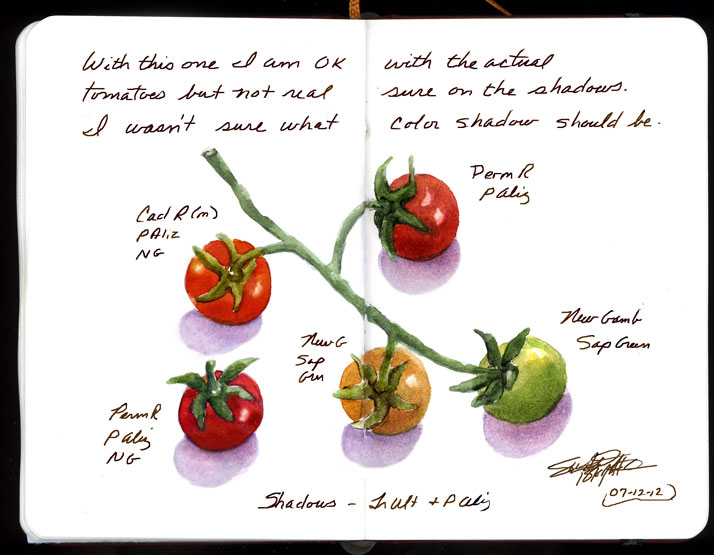 With this one I am OK with the actual
tomatoes but not real sure on the shadows.
I wasn't sure what color shadow should be.
Perm R
P Aliz
Cad R (m)
P Aliz
NG
New Gamb
Sap Green
New G
Sap
Grn
Perm R
P Aliz
NG
(07-12-12)
Shadows - + P Aliz